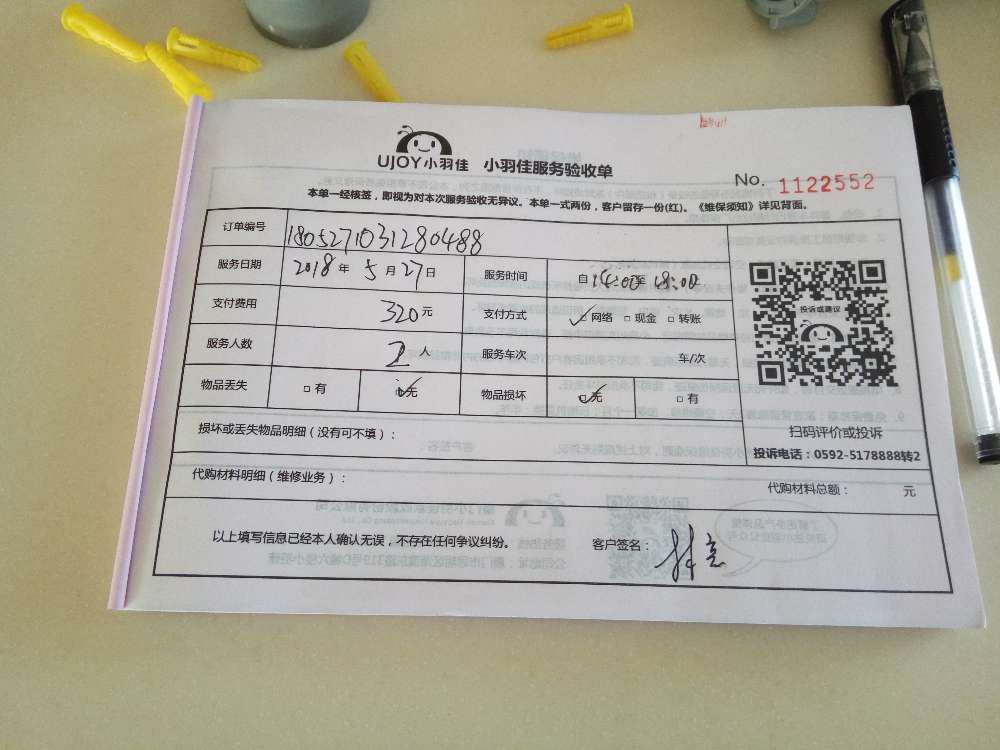 UJOY小羽佳 小羽佳服务验收单
No. 1122552
本单一经核签，即视为对本次服务验收无异议。本单一式两份，客户留存一份(红)。《维保须知》详见背面。
订单编号 180527103128​0488
服务日期 2018年5月27日 服务时间 自14:00至18:00
支付费用 320元 支付方式 ☑网络 □现金 □转账
服务人数 2人 服务车次 车/次
物品丢失 □有 ☑无 物品损坏 ☑无 □有
投诉或建议
扫码评价或投诉
投诉电话：0592-5178888转2
损坏或丢失物品明细（没有可不填）：
代购材料明细（维修业务）： 代购材料总额： 元
以上填写信息已经本人确认无误，不存在任何争议纠纷。 客户签名：